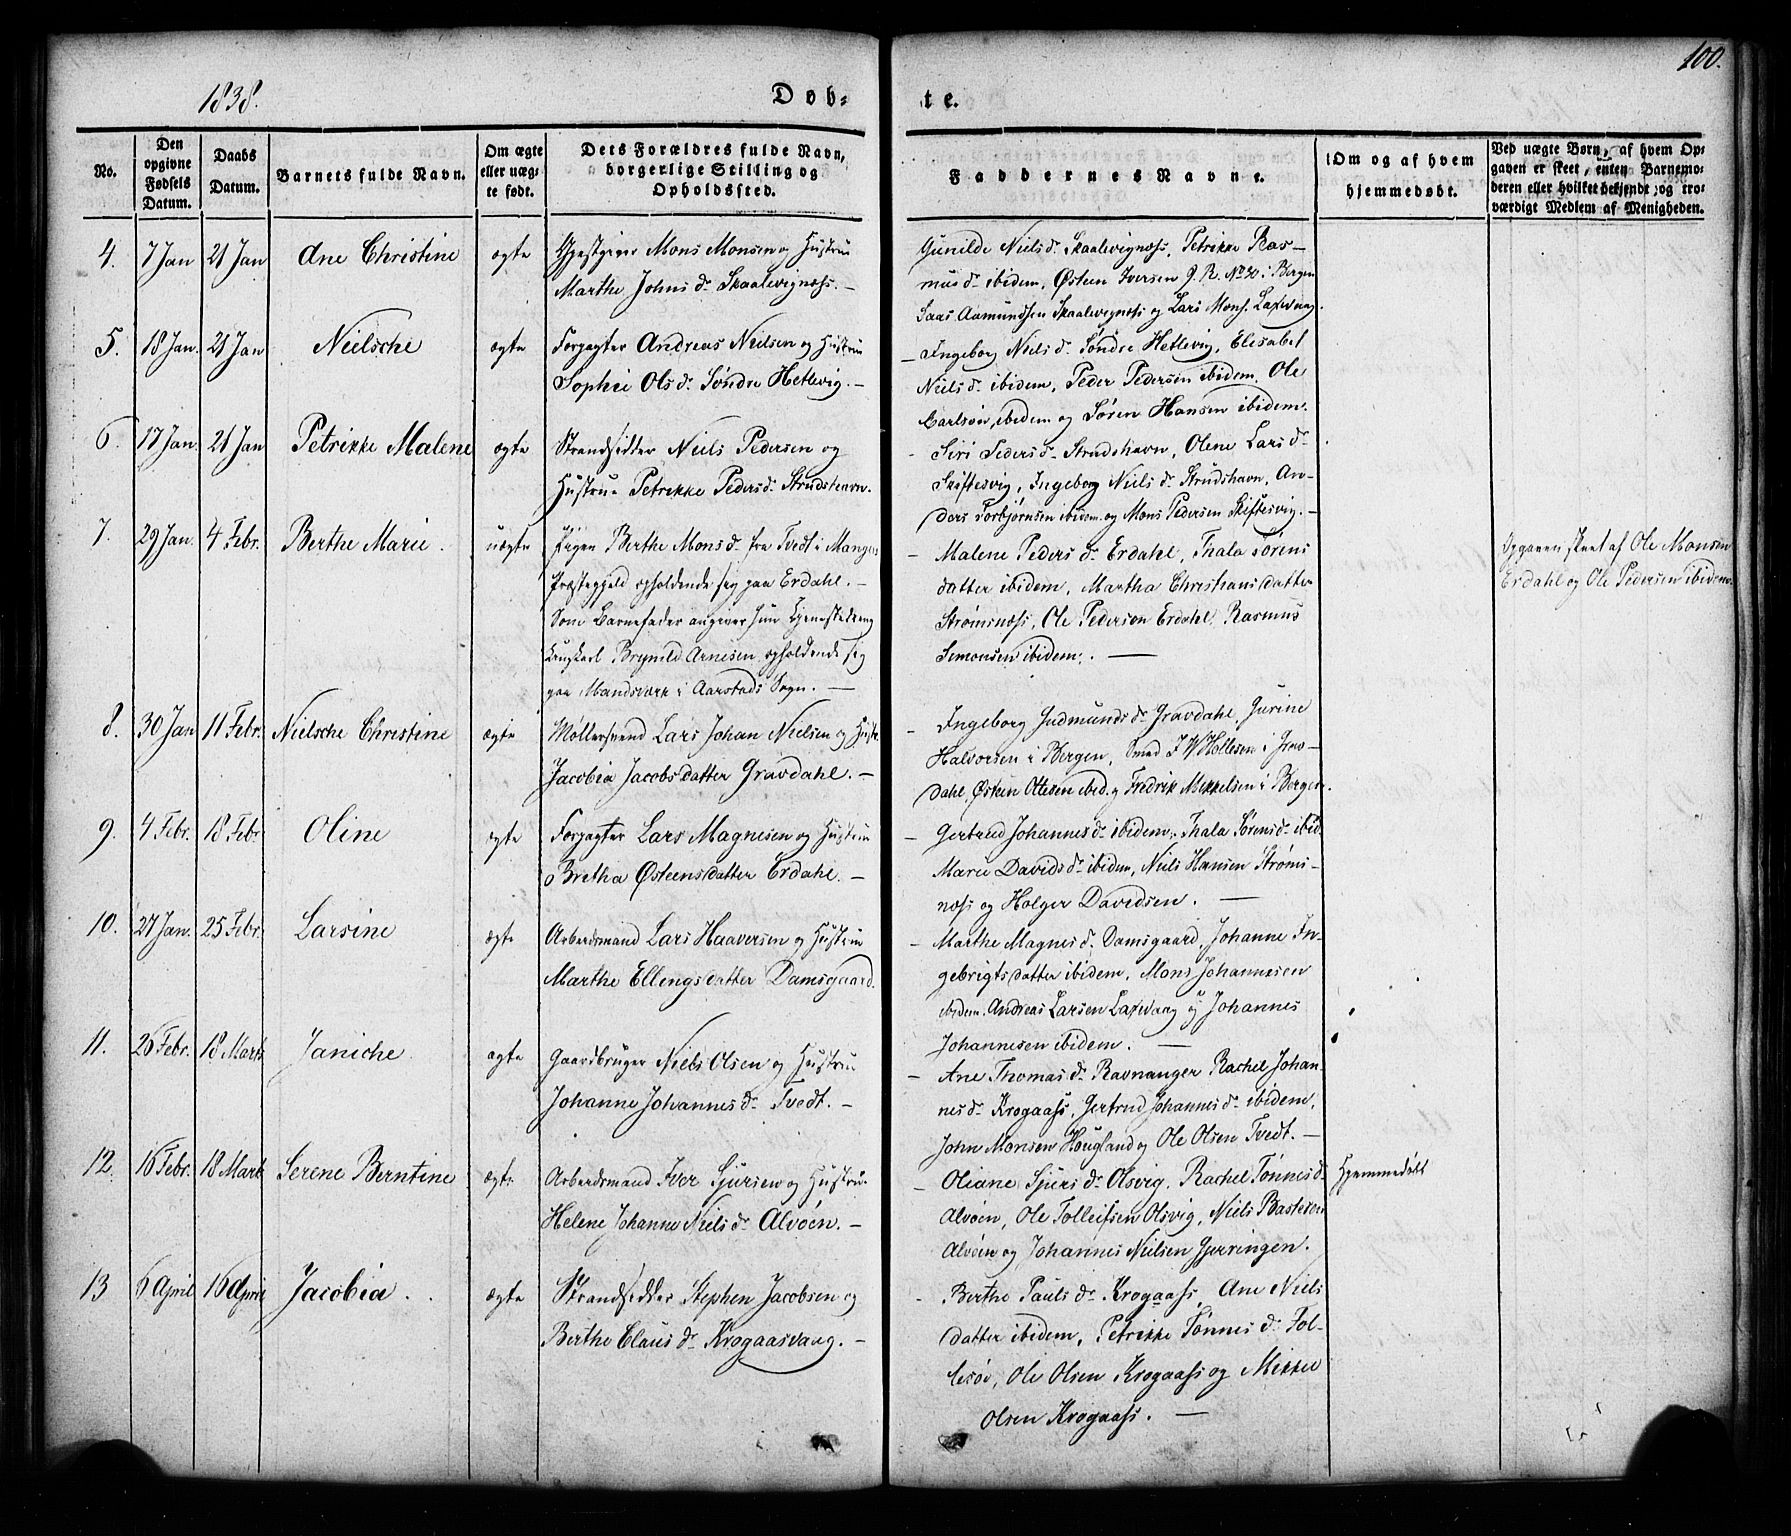 1838.
Døb-
te.
100.
No.
Den opgivne Fødsels Datum.
Daabs Datum.
Barnets fulde Navn.
Om ægte eller uægte født.
Dets Forældres fulde Navn, borgerlige Stilling og Opholdssted.
Faddernes Navne.
Om og af hvem hjemmedøbt.
Ved uægte Børn, af hvem Opgaven er skeet, enten Barnemoderen eller hvilket bekjendt og troværdigt Medlem af Menigheden.
4. 7 Jan 21 Jan Ane Christine ægte
Gjestgiver Mons Monsen og Hustrue
Marthe Johns d. Skaalevignæss. -
Gunilde Niels d. Skaalevignæss, Petrikke Ras-
mus d. ibidem, Østen Iversen 9. R. No 20 i Bergen
Saas Aamundsen Skaalevignæss og Lars Mons. Laxevaag.
5. 18 Jan. 21 Jan Nielsche ægte
Forpagter Andreas Nielsen og Hustrue
Sophie Ols d. Søndre Hetlevig. -
- Ingeborg Niels d. Søndre Hetlevig, Elisabet
Niels d. ibidem, Peder Pedersen ibidem. Ole
Carlsøn ibidem og Søren Hansen ibidem.
6. 17 Jan. 21 Jan Petrikke Malene ægte
Strandsidder Niels Pedersen og
Hustrue Petrikke Peders d. Strudshavn.
- Siri Peders d. Strudshavn, Olene Lars d.
Skiftesvig, Ingeborg Niels d. Strudshavn, An-
ders Torbjørnsen ibidem. og Mons Pedersen Skiftesvig. -
7. 29 Jan. 4 Febr. Berthe Marie. uægte
Pigen Berthe Mons d. fra Tvedt i Manger
Præstegjeld opholdende sig paa Erdahl. -
Som Barnefader angiver hun Tjenestedreng
Ungkarl Brynild Arnesen opholdende sig
paa Mandsværk i Aarstads Sogn. -
- Malene Peders d. Erdahl, Thala Sørens
datter ibidem, Martha Christians datter
Strømsnæss, Ole Pedersøn Erdahl, Rasmus
Simonsen ibidem. -
Opgaven skeet af Ole Monsen
Erdahl og Ole Pedersen ibidem.
8. 30 Jan 11 Febr. Nielsche Christine ægte
Møllersvend Lars Johan Nielsen og Hustr.
Jacobia Jacobs datter Gravdahl. -
- Ingeborg Gudmunds d. Gravdahl, Gurine
Halvorsen i Bergen, Smed J W Hollesen i Grav-
dahl, Østen Olesen ibid. og Fredrik Mikkelsen i Bergen.
9. 4 Febr. 18 Febr. Oline ægte
Forpagter Lars Magnesen og Hustrue
Bretha Østeens datter Erdahl. -
- Gertrud Johannes d. ibidem, Thala Sørens d. ibid.
Marie Davids d. ibidem, Niels Hansen Strøms-
næss og Holger Davidsen. -
10. 27 Jan. 25 Febr. Larsine ægte
Arbeidsmand Lars Haaversen og Hustrue
Marthe Ellengs datter Damsgaard.
- Marthe Magnes d. Damsgaard, Johanne In-
gebrigts datter ibidem, Mons Johannesen
ibidem. Andreas Larsen Laxevaag og Johannes
Johannesen ibidem. -
11. 26 Febr. 18 Marts Janiche. ægte
Gaardbruger Niels Olsen og Hustrue
Johanne Johannes d. Tvedt. -
- Ane Thomas d. Ravnanger Rachel Johan-
nes d. Krogaass, Gertrud Johannes d. ibidem,
John Monsen Hougland og Ole Olsen Tvedt. -
12. 16 Febr. 18 Mark Serene Berntine ægte
Arbeidsmand Iver Sjursen og Hustrue
Helene Johanne Niels d. Alvøen. -
- Oliane Sjurs d. Olsvig, Rachel Tønnes d.
Alvøen, Ole Tolleifsen Olsvig, Niels Bastesen
Alvøen og Johannes Nielsen Gjerringen.
Hjemmedøbt
13 6 April 16 April Jacobia. ægte
Strandsidder Stephen Jacobsen og
Berthe Claus d. Krogaasvaag. -
- Berthe Pauls d. Krogaass, Ane Niels
datter ibidem, Petrikke Tønnes d. Fol-
lesøe, Ole Olsen Krogaass og Mikkel
Olsen Krogaass. -